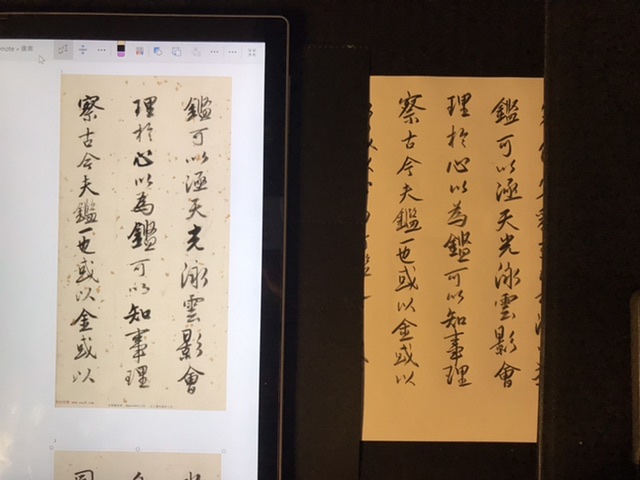 鑑可以涵天光泳雲影會
理於心以為鑑可以知事理
察古今夫鑑一也或以金或以
鑑可以涵天光泳雲影會
理於心以為鑑可以知事理
察古今夫鑑一也或以金或以